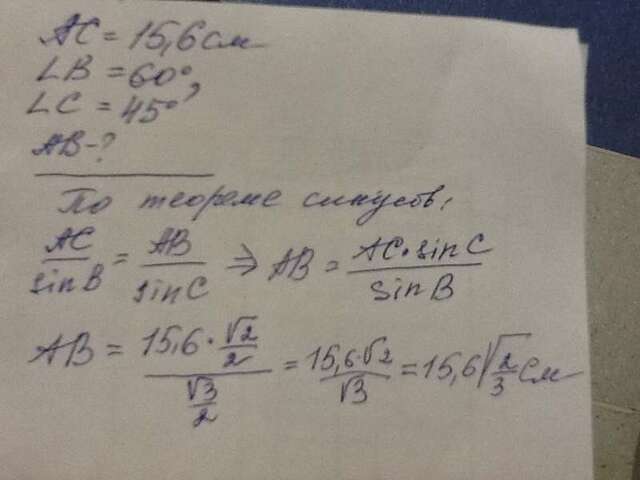 AC = 15,6 см
∠B = 60°,
∠C = 45°
AB - ?
По теореме синусов:
AC/sin B = AB/sin C ⇒ AB = AC·sin C/sin B
AB = (15,6 · √2/2)/(√3/2) = 15,6·√2/√3 = 15,6√(2/3) см